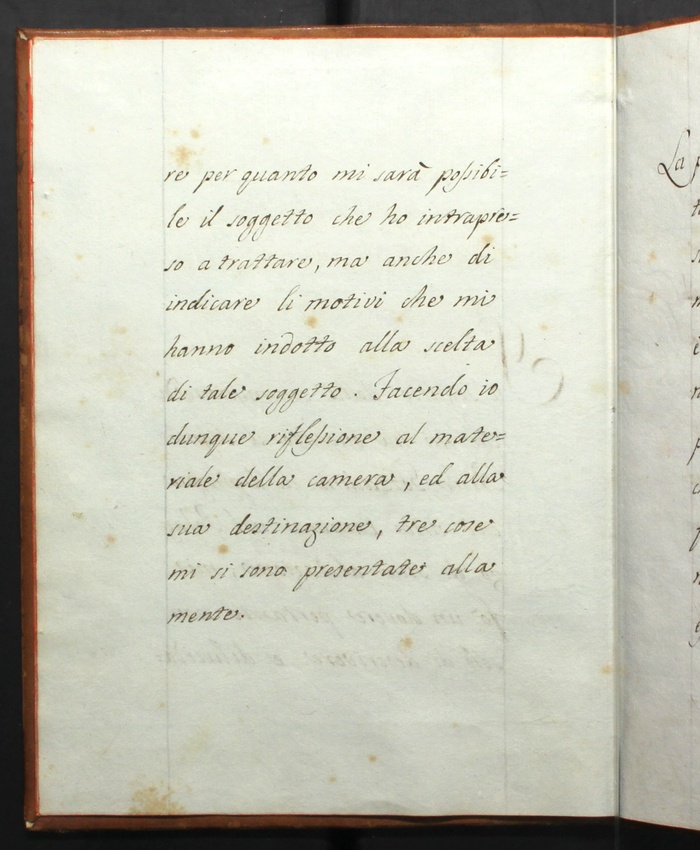 re per quanto mi sarà possibi=
le il soggetto che ho intrapre=
so a trattare, ma anche di
indicare li motivi che mi
hanno indotto alla scelta
di tale soggetto. Facendo io
dunque riflessione al mate=
riale della camera, ed alla
sua destinazione, tre cose
mi si sono presentate alla
mente.
La